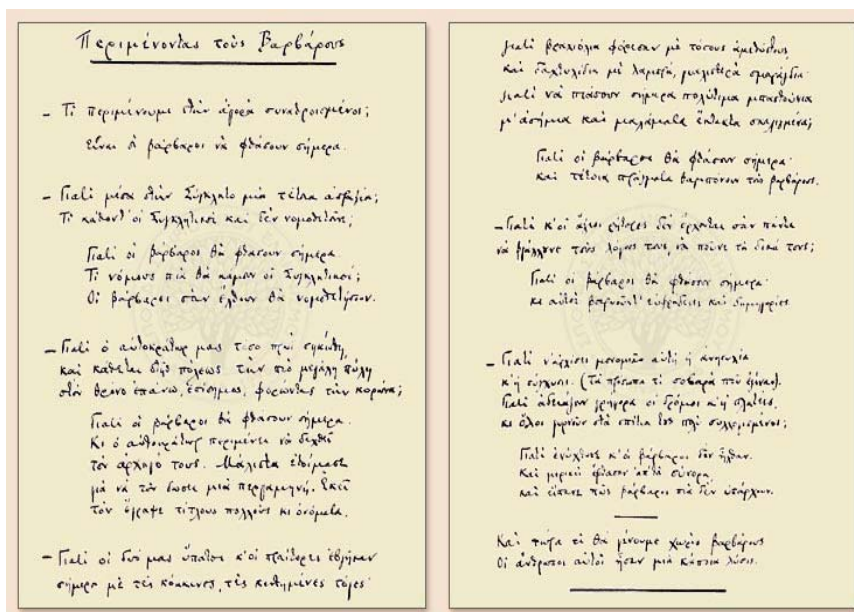 Περιμένοντας τοὺς Βαρβάρους
— Τί περιμένουμε στὴν ἀγορὰ συναθροισμένοι;
Εἶναι οἱ βάρβαροι νὰ φθάσουν σήμερα.
— Γιατί μέσα στὴν Σύγκλητο μιὰ τέτοια ἀπραξία;
Τί κάθοντ' οἱ Συγκλητικοὶ καὶ δὲν νομοθετοῦνε;
Γιατὶ οἱ βάρβαροι θὰ φθάσουν σήμερα.
Τί νόμους πιὰ θὰ κάμουν οἱ Συγκλητικοί;
Οἱ βάρβαροι σὰν ἔλθουν θὰ νομοθετήσουν.
— Γιατί ὁ αὐτοκράτωρ μας τόσο πρωῒ σηκώθη,
καὶ κάθεται στῆς πόλεως τὴν πιὸ μεγάλη πύλη
στὸν θρόνο ἐπάνω, ἐπίσημος, φορῶντας τὴν κορώνα;
Γιατὶ οἱ βάρβαροι θὰ φθάσουν σήμερα.
Κι ὁ αὐτοκράτωρ περιμένει νὰ δεχθεῖ
τὸν ἀρχηγό τους. Μάλιστα ἑτοίμασε
γιὰ νὰ τὸν δώσει μιὰ περγαμηνή. Ἐκεῖ
τὸν ἔγραψε τίτλους πολλοὺς κι ὀνόματα.
— Γιατί οἱ δυό μας ὕπατοι κ' οἱ πραίτορες ἐβγῆκαν
σήμερα μὲ τὲς κόκκινες, τὲς κεντημένες τόγες·
γιατί βραχιόλια φόρεσαν μὲ τόσους ἀμεθύστους,
καὶ δαχτυλίδια μὲ λαμπρά, γυαλιστερὰ σμαράγδια·
γιατί νὰ πιάσουν σήμερα πολύτιμα μπαστούνια
μ' ἀσήμια καὶ μαλάματα ἔκτακτα σκαλιγμένα;
Γιατὶ οἱ βάρβαροι θὰ φθάσουν σήμερα·
καὶ τέτοια πράγματα θαμπόνουν τοὺς βαρβάρους.
— Γιατί κ' οἱ ἄξιοι ρήτορες δὲν ἔρχονται σὰν πάντα
νὰ βγάλουνε τοὺς λόγους τους, νὰ ποῦνε τὰ δικά τους;
Γιατὶ οἱ βάρβαροι θὰ φθάσουν σήμερα·
κι αὐτοὶ βαρυοῦντ' εὐφράδειες καὶ δημηγορίες.
— Γιατί ν' ἀρχίσει μονομιᾶς αὐτὴ ἡ ἀνησυχία
κ' ἡ σύγχυσις. (Τὰ πρόσωπα τί σοβαρὰ ποὺ ἐγίναν).
Γιατί ἀδειάζουν γρήγορα οἱ δρόμοι κ' ἡ πλατέες,
κι ὅλοι γυρνοῦν στὰ σπίτια τους πολὺ συλλογισμένοι;
Γιατὶ ἐνύχτωσε κ' οἱ βάρβαροι δὲν ἦλθαν.
Καὶ μερικοὶ ἔφθασαν ἀπ' τὰ σύνορα,
καὶ εἴπανε πὼς βάρβαροι πιὰ δὲν ὑπάρχουν.
Καὶ τώρα τί θὰ γένουμε χωρὶς βαρβάρους.
Οἱ ἄνθρωποι αὐτοὶ ἦσαν μιὰ κάποια λύσις.